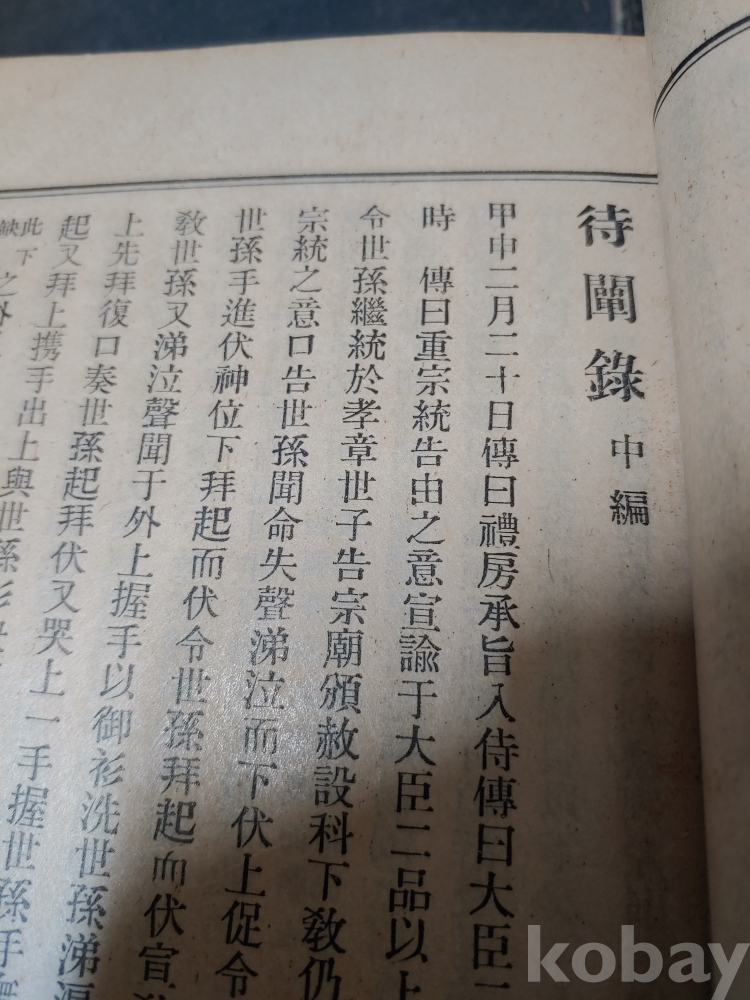 待闡錄 中編
甲申二月二十日傳曰禮房承旨入侍傳曰大臣二
時 傳曰重宗統告由之意宣諭于大臣二品以上
令世孫繼統於孝章世子告宗廟頒赦設科下敎仍
宗統之意口告世孫聞命失聲涕泣而下伏上促令
世孫手進伏神位下拜起而伏令世孫拜起而伏宣
敎世孫又涕泣聲聞于外上握手以御衫洗世孫涕
上先拜復口奏世孫起拜伏又哭上一手握世孫手
起又拜上携手出上與世孫
此下缺
kobay